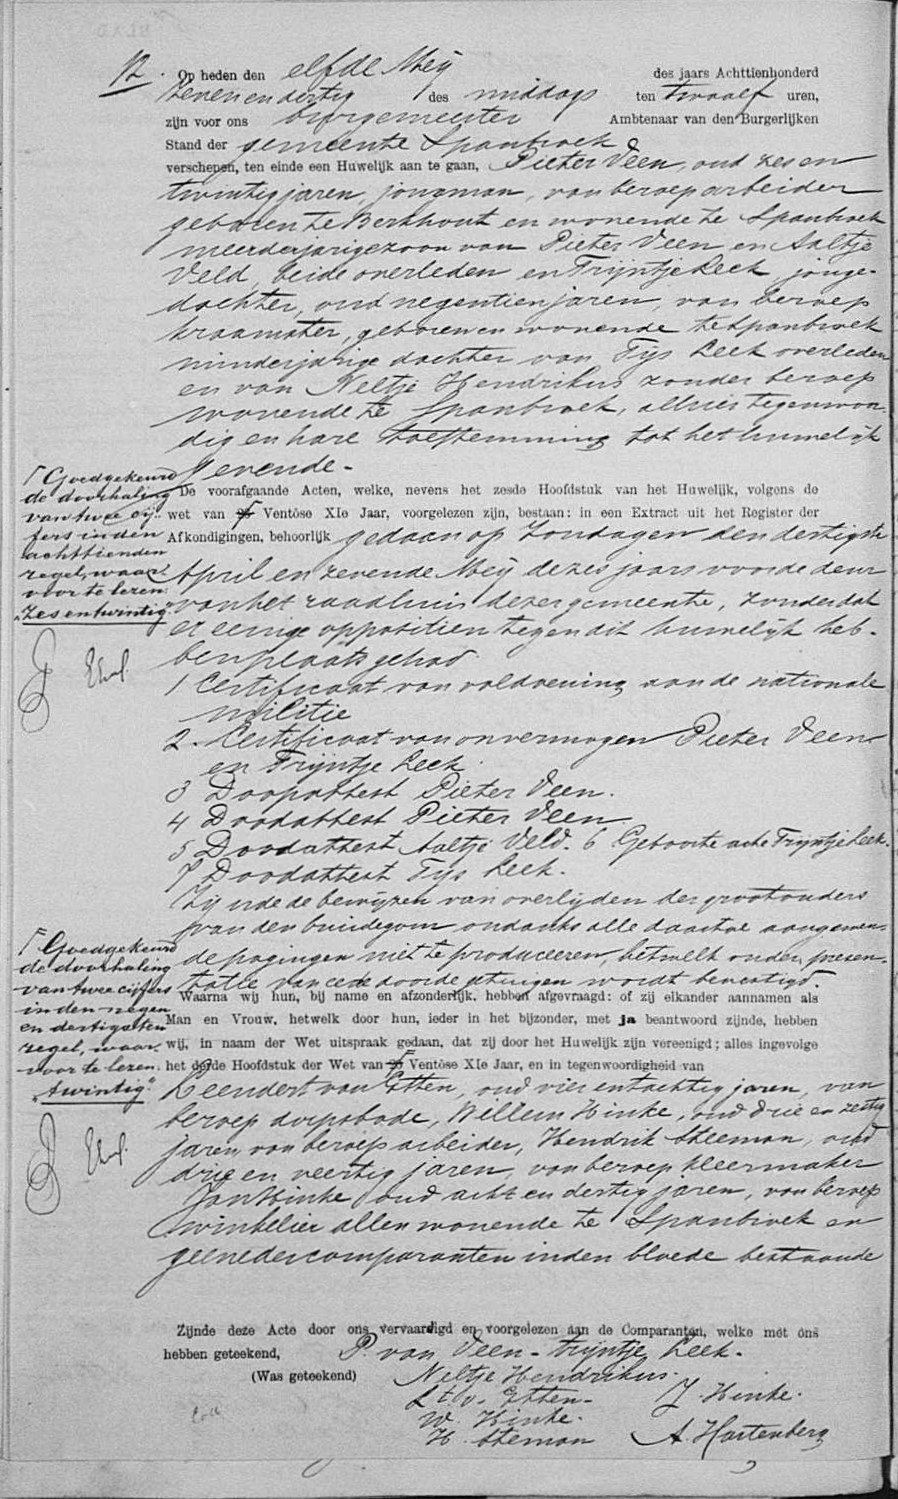 12. Op heden den elfde Meij des jaars Achttienhonderd
zevenendertig des middags ten twaalf uren,
zijn voor ons burgemeester Ambtenaar van den Burgerlijken
Stand der gemeente Spanbroek
verschenen, ten einde een Huwelijk aan te gaan, Pieter Veen, oud zes en
twintig jaren, jongman, van beroep arbeider
geboren te Berkhout en wonende te Spanbroek
meerderjarige zoon van Pieter Veen en Aaltje
Veld, beide overleden en Trijntje Leek, jonge-
dochter, oud negentien jaren, van beroep
kraamster, geboren en wonende te Spanbroek
minderjarige dochter van Tijs Leek overleden
en van Neltje Hendrikus zonder beroep
wonende te Spanbroek, alhier tegenwoor-
dig en hare toestemming tot het huwelijk
gevende.-
De voorafgaande Acten, welke, nevens het zesde Hoofdstuk van het Huwelijk, volgens de
wet van 25 Ventôse XIe Jaar, voorgelezen zijn, bestaan: in een Extract uit het Register der
Afkondigingen, behoorlijk gedaan op Zondagen den dertigste
April en zevende Meij dezes jaars voor de deur
van het raadhuis dezer gemeente, zonder dat
er eenige oppositien tegen dit huwelijk heb-
ben plaats gehad
1 Certificaat van voldoening aan de nationale
militie
2. Certificaat van onvermogen Pieter Veen
en Trijntje Leek.
3 Doopattest Pieter Veen.
4 Doodattest Pieter Veen
5 Doodattest Aaltje Veld. 6 Geboorte acte Trijntje Leek.
7 Doodattest Tijs Leek.
Zijnde de bewijzen van overlijden der grootouders
van den bruidegom ondanks alle daartoe aangewen-
de pogingen niet te produceeren, hetwelk onder presen-
tatie van eede door de getuigen wordt bevestigd.
Waarna wij hun, bij name en afzonderlijk, hebben afgevraagd: of zij elkander aannamen als
Man en Vrouw, hetwelk door hun, ieder in het bijzonder, met ja beantwoord zijnde, hebben
wij, in naam der Wet uitspraak gedaan, dat zij door het Huwelijk zijn vereenigd; alles ingevolge
het derde Hoofdstuk der Wet van Ventôse XIe Jaar, en in tegenwoordigheid van
Leendert van Etten, oud vier en tachtig jaren, van
beroep dorpsbode, Willem Hinke, oud drie en zestig
jaren, van beroep arbeider, Hendrik Steeman, oud
drie en veertig jaren, van beroep kleermaker
Jan Hinke oud acht en dertig jaren, van beroep
winkelier allen wonende te Spanbroek en
geene der comparanten in den bloede bestaande
Zijnde deze Acte door ons vervaardigd en voorgelezen aan de Comparanten, welke met ons
hebben geteekend, P. van Veen - Trijntje Leek.
(Was geteekend) Neltje Hendrikus.
L. v. Etten. J. Hinke.
W. Hinke.
H. Steman A. Hartenberg
Goedgekeurd
de doorhaling
van twee cij-
fers in den
achttienden
regel, waar-
voor te lezen:
"Zes en twintig"
Goedgekeurd
de doorhaling
van twee cijfers
in den negen
en dertigsten
regel, waar-
voor te lezen:
"twintig"